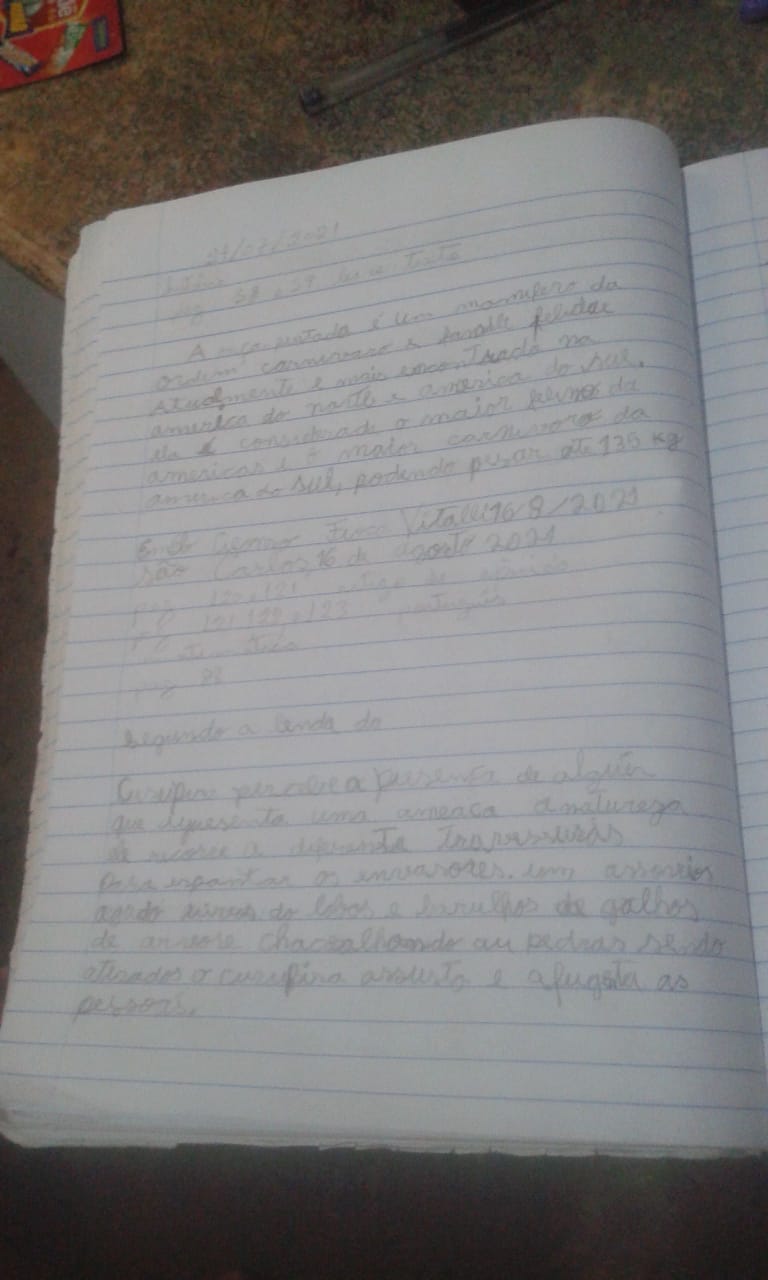 27/07/2021
pag 58 e 59 ler o texto
A onça pintada é um mamifero da
ordem carnivoro e famille felidae
Atualmente é mais encontrado na
america do norte e america do sul.
ela é considerado o maior felino da
americas e o maior carnivoro da
america do sul, podendo pesar ate 135 kg
Emeb Carmo Vitalli 16/8/2021
São Carlos 16 de agosto 2021
pag 120, 121 artigo de
pg 121, 122, 123 português
pag 88
segundo a lenda do
Curupira percebe a presença de alguen
que representa uma ameaca a natureza
ele recorre a diferente travessuras
para espantar os invasores. com assovios
agudo uivos do lobos e barulhos de galhos
de arvore chacoalhando au pedras sendo
atirados o curupira assusta e afugeta as
pessoas.